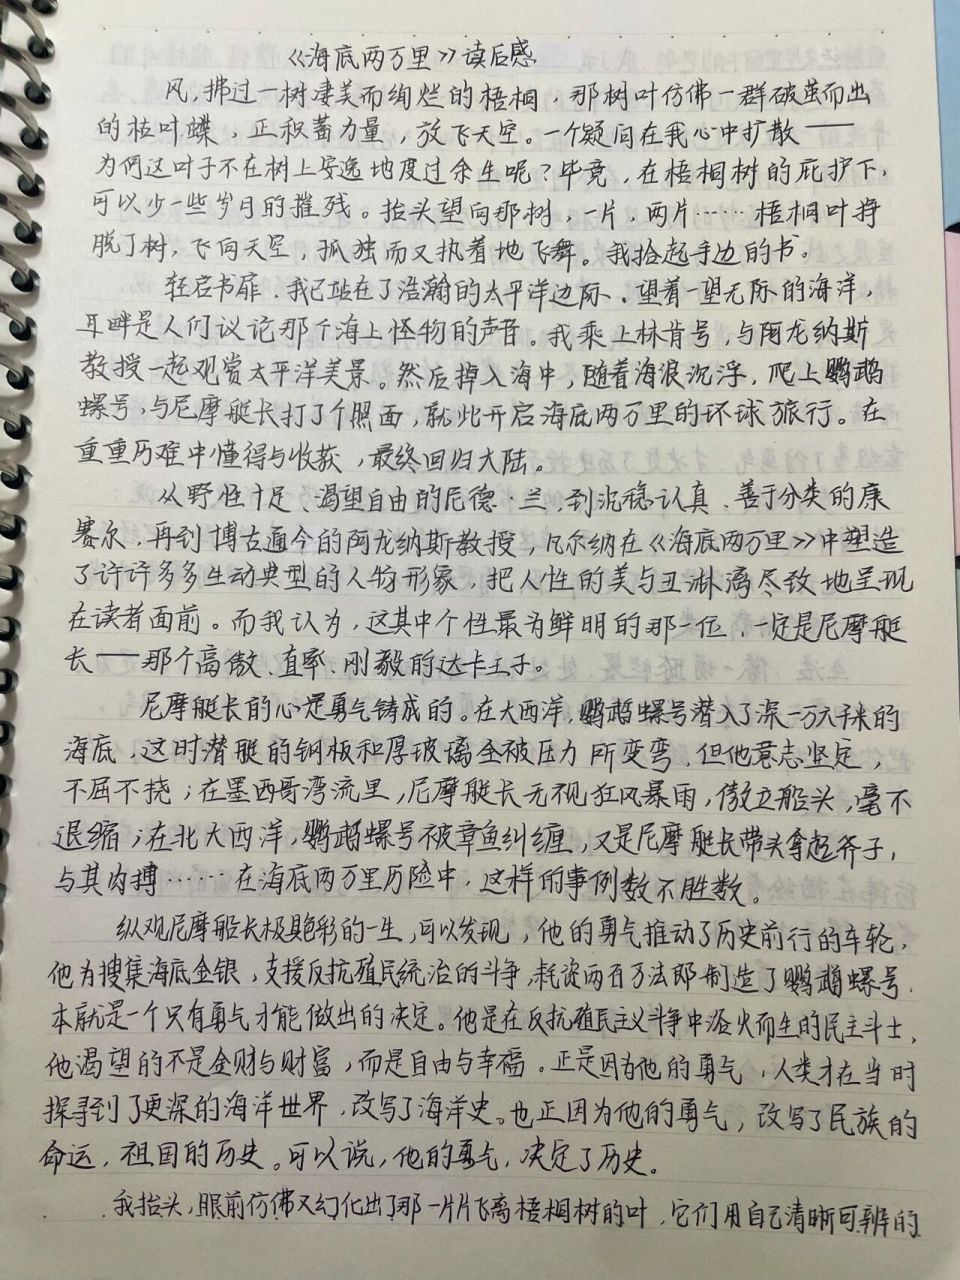 《海底两万里》读后感
风，拂过一树凄美而绚烂的梧桐，那树叶仿佛一群破茧而出
的枯叶蝶，正积蓄力量，放飞天空。一个疑问在我心中扩散——
为何这叶子不在树上安逸地度过余生呢？毕竟，在梧桐树的庇护下，
可以少一些岁月的摧残。抬头望向那树，一片，两片……梧桐叶挣
脱了树，飞向天空，孤独而又执着地飞舞。我拾起手边的书。
轻启书扉，我已站在了浩瀚的太平洋边际。望着一望无际的海洋，
耳畔是人们议论那个海上怪物的声音。我乘上林肯号，与阿龙纳斯
教授一起观赏太平洋美景。然后掉入海中，随着海浪沉浮，爬上鹦鹉
螺号，与尼摩艇长打了个照面，就此开启海底两万里的环球旅行。在
重重历难中懂得与收获，最终回归大陆。
从野性十足、渴望自由的尼德·兰，到沉稳认真、善于分类的康
赛尔，再到博古通今的阿龙纳斯教授，凡尔纳在《海底两万里》中塑造
了许许多多生动典型的人物形象，把人性的美与丑淋漓尽致地呈现
在读者面前。而我认为，这其中个性最为鲜明的那一位，一定是尼摩艇
长——那个高傲、直率、刚毅的达卡王子。
尼摩艇长的心是勇气铸成的。在大西洋，鹦鹉螺号潜入了深一万六千米的
海底，这时潜艇的钢板和厚玻璃全被压力所变弯，但他意志坚定，
不屈不挠；在墨西哥湾流里，尼摩艇长无视狂风暴雨，傲立船头，毫不
退缩；在北大西洋，鹦鹉螺号被章鱼纠缠，又是尼摩艇长带头拿起斧子，
与其肉搏……在海底两万里历险中，这样的事例数不胜数。
纵观尼摩船长极具艳彩的一生，可以发现，他的勇气推动了历史前行的车轮，
他为搜集海底金银，支援反抗殖民统治的斗争，耗资两百万法郎制造了鹦鹉螺号，
本就是一个只有勇气才能做出的决定。他是在反抗殖民主义斗争中浴火而生的民主斗士，
他渴望的不是金财与财富，而是自由与幸福。正是因为他的勇气，人类才在当时
探寻到了更深的海洋世界，改写了海洋史。也正因为他的勇气，改写了民族的
命运，祖国的历史。可以说，他的勇气，决定了历史。
我抬头，眼前仿佛又幻化出了那一片片飞离梧桐树的叶，它们用自己清晰可辨的